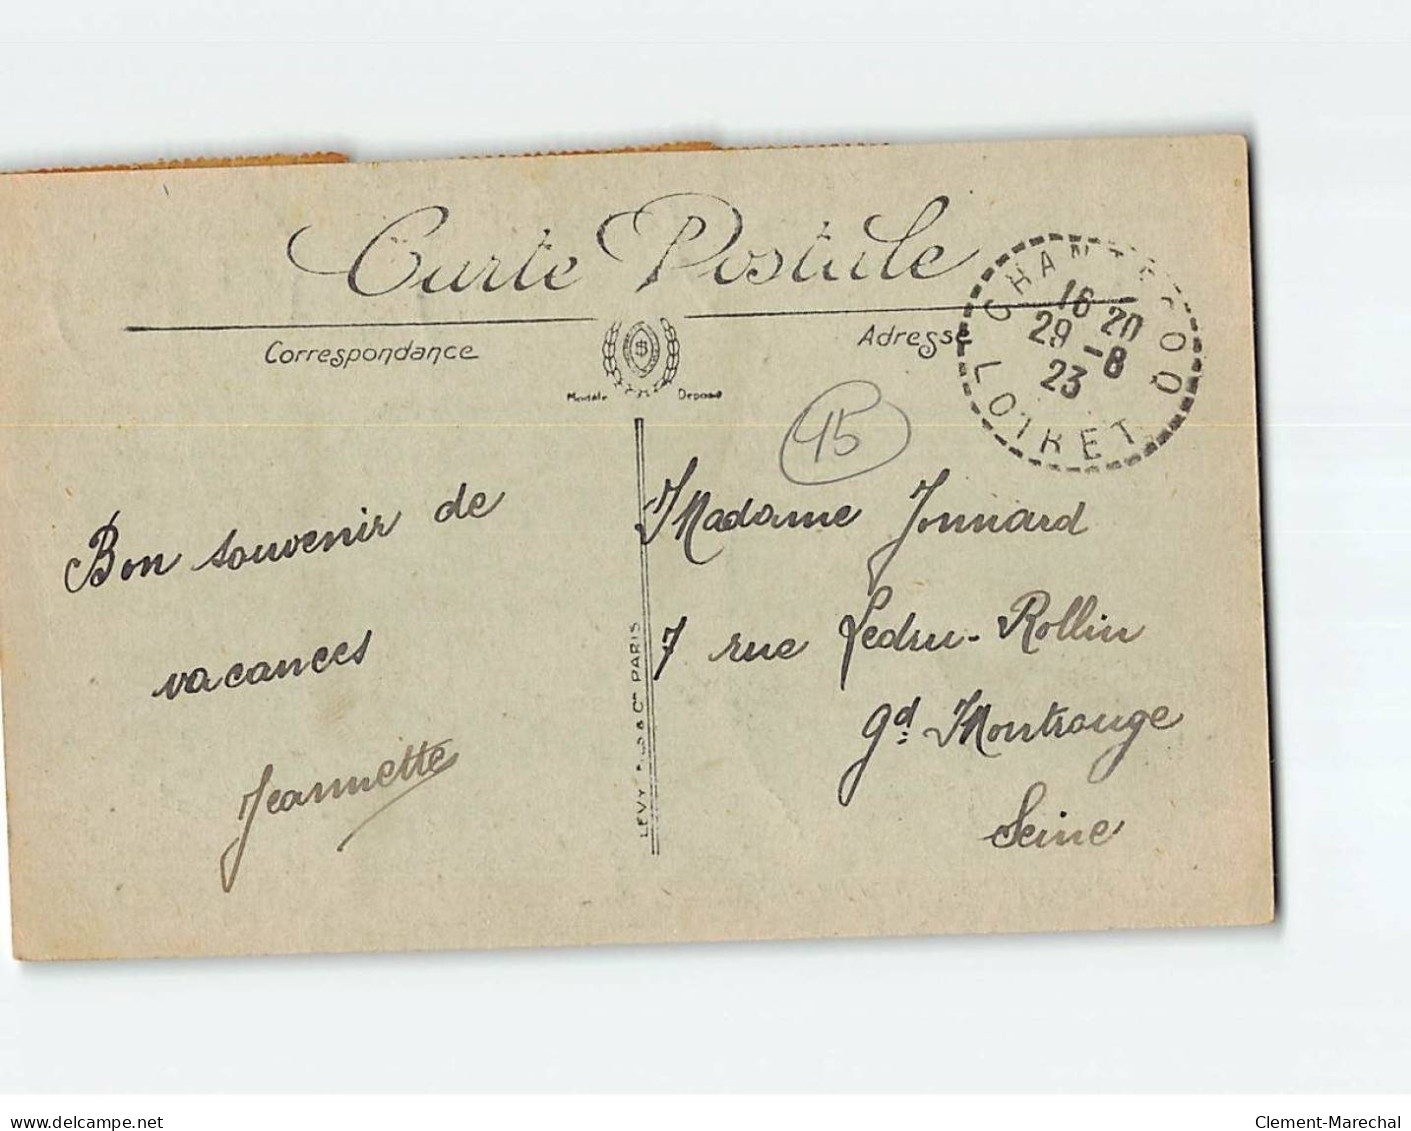 Carte Postale
Correspondance
Adresse
Modèle Déposé
CHANTECOQ
16 20
29 - 8
23
LOIRET
15
Bon souvenir de
vacances
Jeannette
LEVY FILS & Cie PARIS
Madame Jonnard
7 rue Ledru-Rollin
gd. Montrouge
Seine
www.delcampe.net
Clement-Marechal